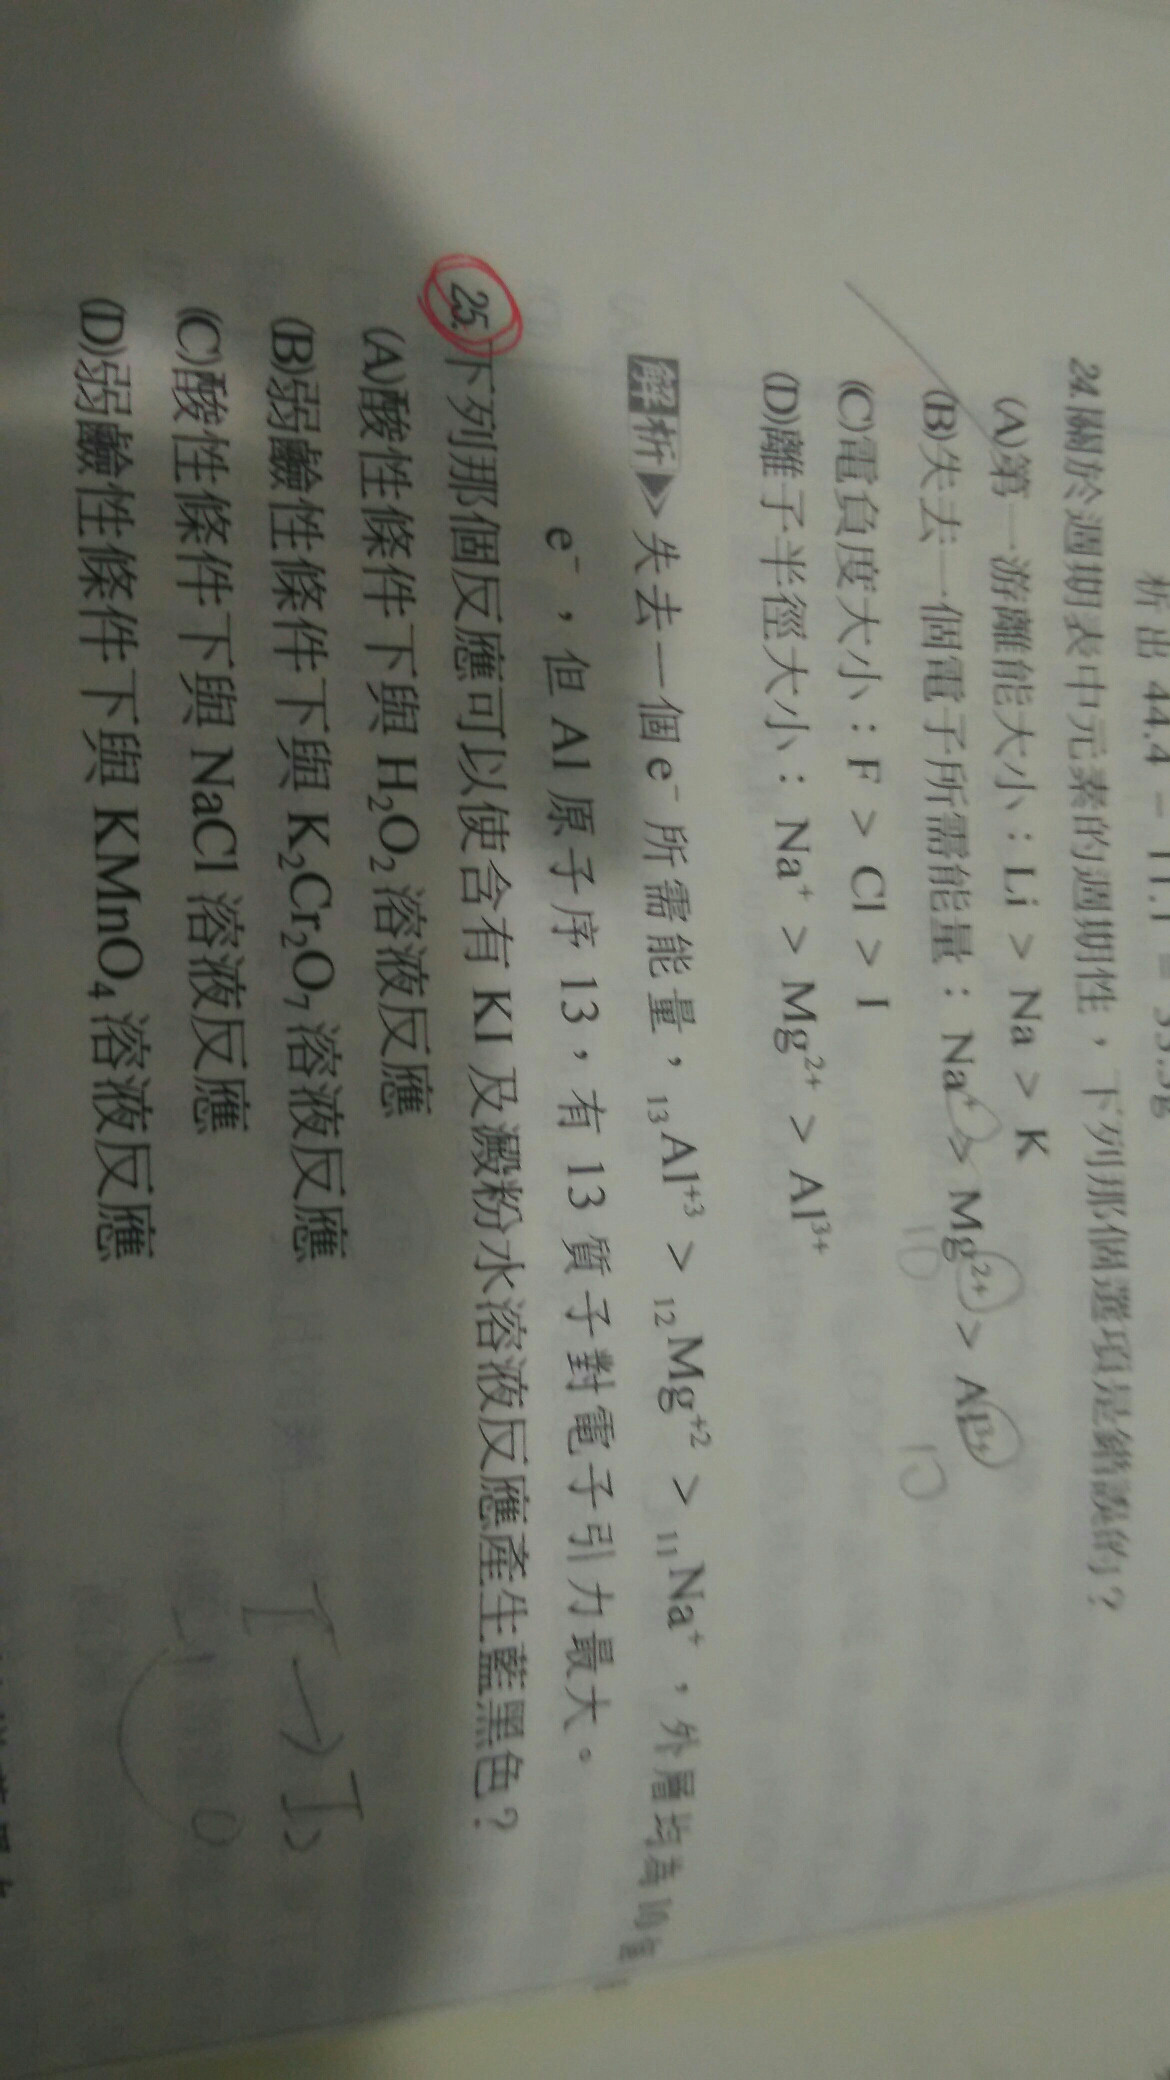 析出 44.4 − 11.1 = 33.3g
24.關於週期表中元素的週期性，下列那個選項是錯誤的？
(A)第一游離能大小：Li > Na > K
(B)失去一個電子所需能量：Na⁺ > Mg²⁺ > Al³⁺
10
10
(C)電負度大小：F > Cl > I
(D)離子半徑大小：Na⁺ > Mg²⁺ > Al³⁺
解析▶失去一個 e⁻ 所需能量，₁₃Al⁺³ > ₁₂Mg⁺² > ₁₁Na⁺，外層均為 10 個
e⁻，但 Al 原子序 13，有 13 質子對電子引力最大。
25.下列那個反應可以使含有 KI 及澱粉水溶液反應產生藍黑色？
(A)酸性條件下與 H₂O₂ 溶液反應
(B)弱鹼性條件下與 K₂Cr₂O₇ 溶液反應
I⁻ → I₂
(C)酸性條件下與 NaCl 溶液反應
-1 0
(D)弱鹼性條件下與 KMnO₄ 溶液反應